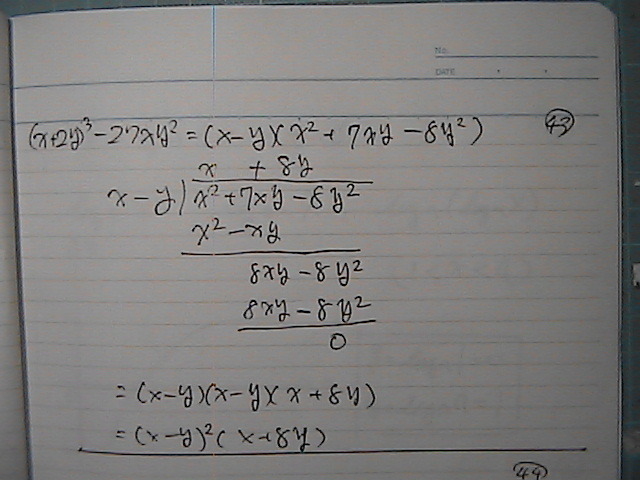 No.
DATE
(x+2y)³-27xy²=(x-y)(x²+7xy-8y²) ㊸
x +8y
x-y)x²+7xy-8y²
x²-xy
8xy-8y²
8xy-8y²
0
=(x-y)(x-y)(x+8y)
=(x-y)²(x+8y)
㊹